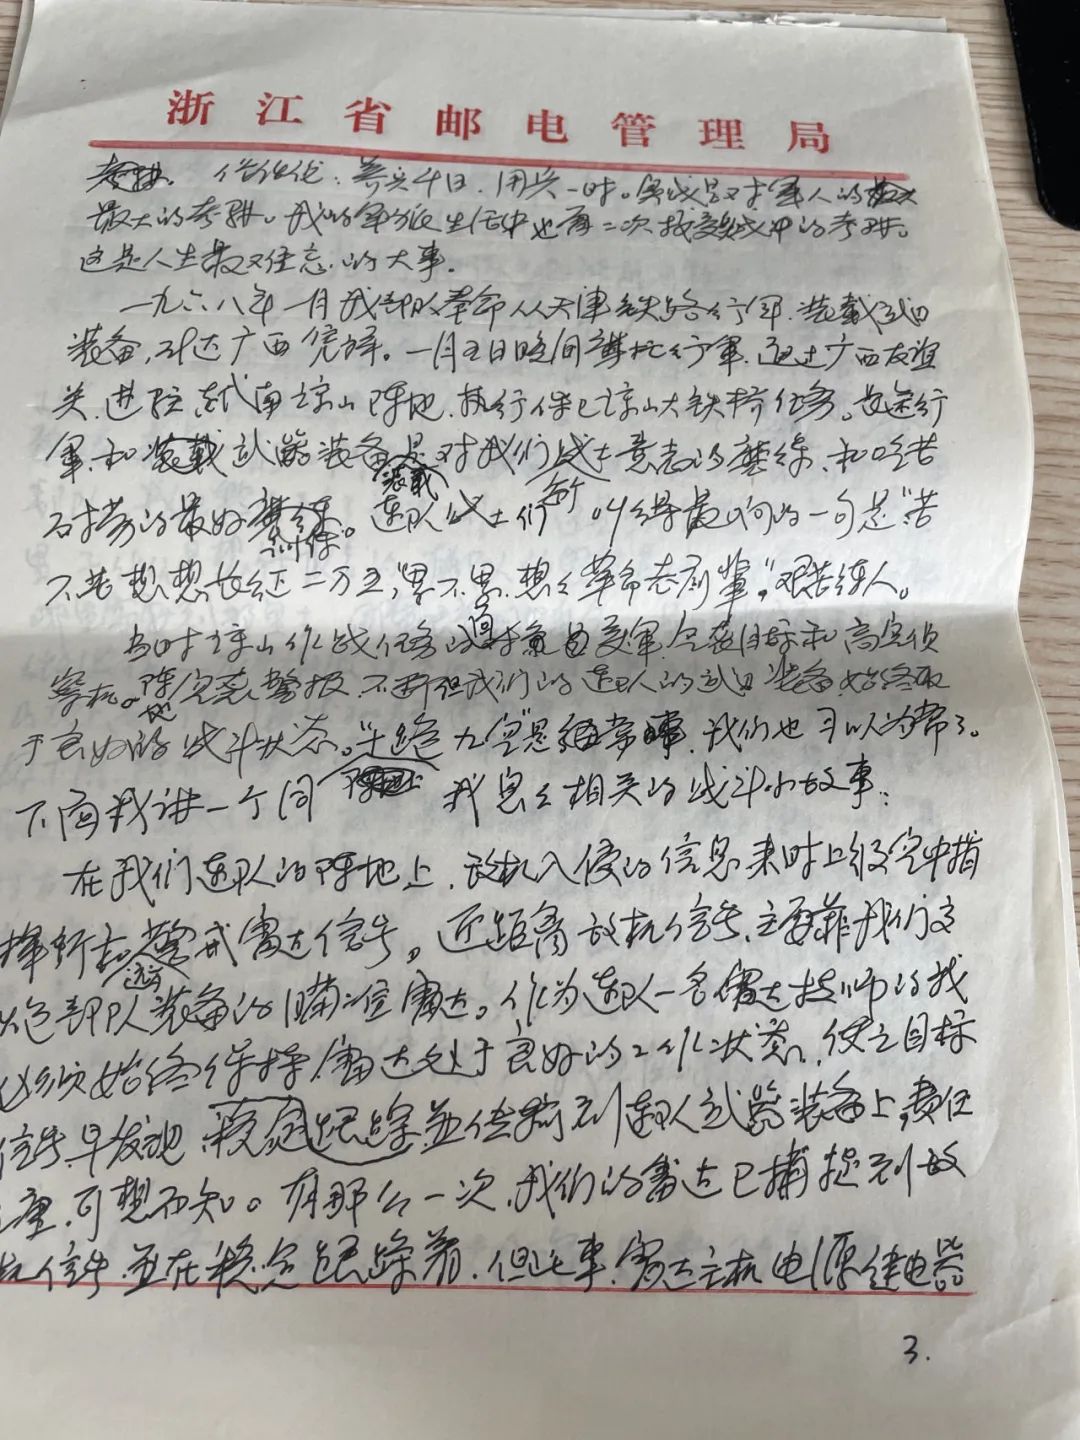 浙江省邮电管理局
俗话说：养兵千日，用兵一时。实战是对军人的
最大的考验。我的军旅生活中也有二次接受战冲的考验。
这是人生最难忘的大事。
一九六八年一月我部队奉命从天津铁路行军，装载武器
装备，到达广西凭祥。一月五日晚间摩托行军，通过广西友谊
关，进驻越南谅山阵地，执行保卫谅山大铁桥任务。长途行
军和装载武器装备是对我们战士意志的磨练，和吃苦
装载
耐劳的最好训练。连队战士们叫得最响的一句是“苦
不苦想想长征二万五，“累不累，想想革命老前辈。”艰苦练人。
当时谅山作战任务的对象是美军空袭目标和高空侦
察机。阵地空袭警报不断但我们的连队的武器装备始终处
于良好的战斗状态。“十炮九空”是经常事，我们也习以为常了。
下面我讲一个同我息息相关的战斗小故事：
在我们连队的阵地上，敌机入侵的信息来时上级空中指
挥所和警戒雷达信号。近距离敌机信号，主要靠我们高
远方
炮部队装备的瞄准雷达。作为连队一名雷达技师的我
必须始终保持雷达处于良好的工作状态，使之目标
信号早发现，稳定跟踪并传输到连队武器装备上，责任
之重，可想而知。有那么一次，我们的雷达已捕捉到敌
机信号，并在稳定跟踪着，但此事，雷达主机电源继电器
3.